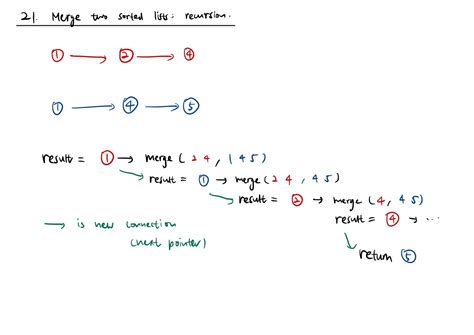 21. Merge two sorted lists: recursion.
1 → 2 → 4
1 → 4 → 5
result = 1 → merge( 2 4 , 1 4 5 )
result = 1 → merge( 2 4 , 4 5 )
result = 2 → merge( 4 , 4 5 )
→ is new connection
result = 4 → ...
(next pointer)
return 5